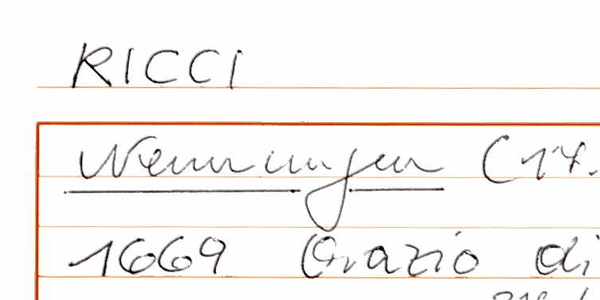 RICCI
Nenningen (17.
1669 Orazio di